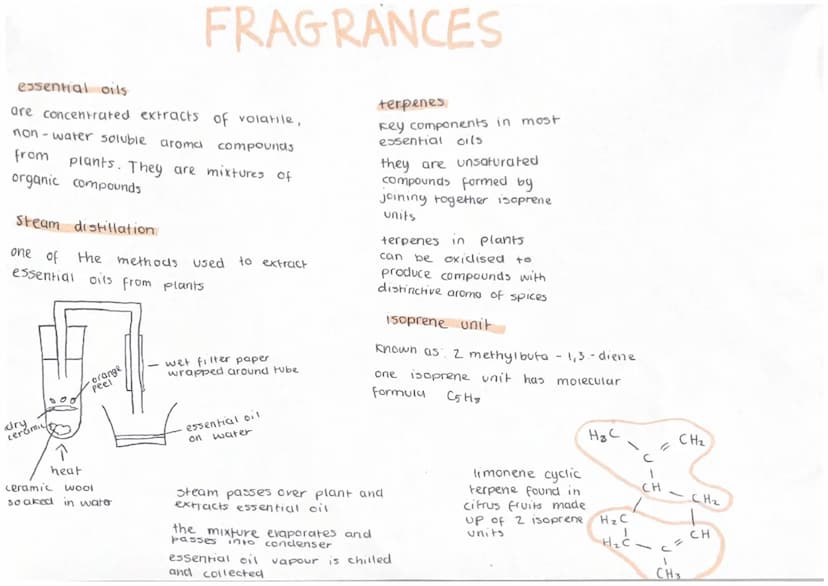 FRAGRANCES
essential oils
are concentrated extracts of volatile,
non-water soluble aroma compounds
from plants. They are mixtures of
organic compounds
steam distillation
one of the methods used to extract
essential oils from plants
orange
peel
wet filter paper
wrapped around tube
dry
ceramic
essential oil
on water
heat
ceramic wool
soaked in water
steam passes over plant and
extracts essential oil
the mixture evaporates and
passes into condenser
essential oil vapour is chilled
and collected
terpenes
key components in most
essential oils
they are unsaturated
compounds formed by
joining together isoprene
units
terpenes in plants
can be oxidised to
produce compounds with
distinctive aroma of spices
isoprene unit
known as: 2 methylbuta - 1,3 - diene
one isoprene unit has molecular
formula C5H8
limonene cyclic
terpene found in
citrus fruits made
up of 2 isoprene
units
H3C
CH2
C
CH
CH2
H2C
H2C
C
CH
CH3